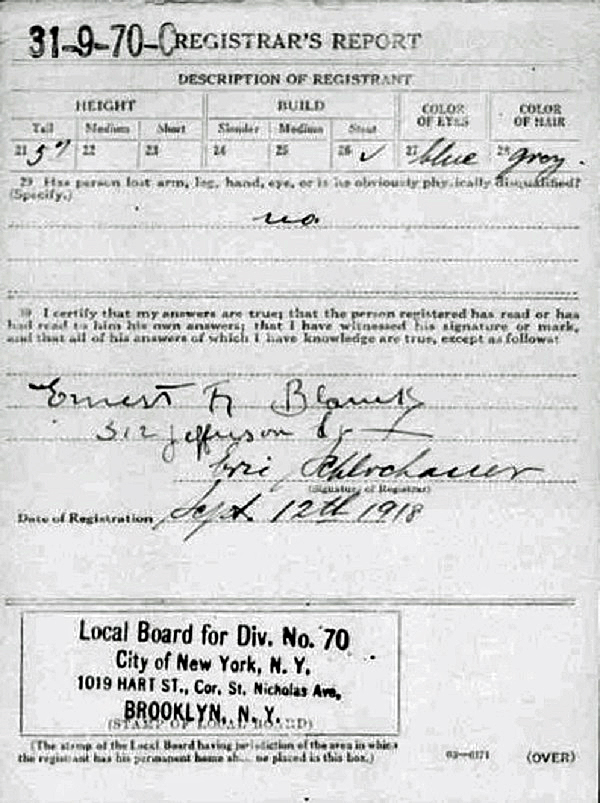 31-9-70-C REGISTRAR'S REPORT
DESCRIPTION OF REGISTRANT
HEIGHT BUILD COLOR OF EYES COLOR OF HAIR
Tall Medium Short Slender Medium Stout
21 5' 22 23 24 25 26 ✓ 27 blue 28 grey.
29 Has person lost arm, leg, hand, eye, or is he obviously physically disqualified?
(Specify.)
no.
30 I certify that my answers are true; that the person registered has read or has
had read to him his own answers; that I have witnessed his signature or mark,
and that all of his answers of which I have knowledge are true, except as follows:
Ernest
312 Jefferson
(Signature of Registrar)
Date of Registration Sept. 12th 1918
Local Board for Div. No. 70
City of New York, N. Y.
1019 HART ST., Cor. St. Nicholas Ave,
BROOKLYN, N. Y.
(STAMP OF LOCAL BOARD)
(The stamp of the Local Board having jurisdiction of the area in which
the registrant has his permanent home sh... be placed in this box.)
03—6171 (OVER)